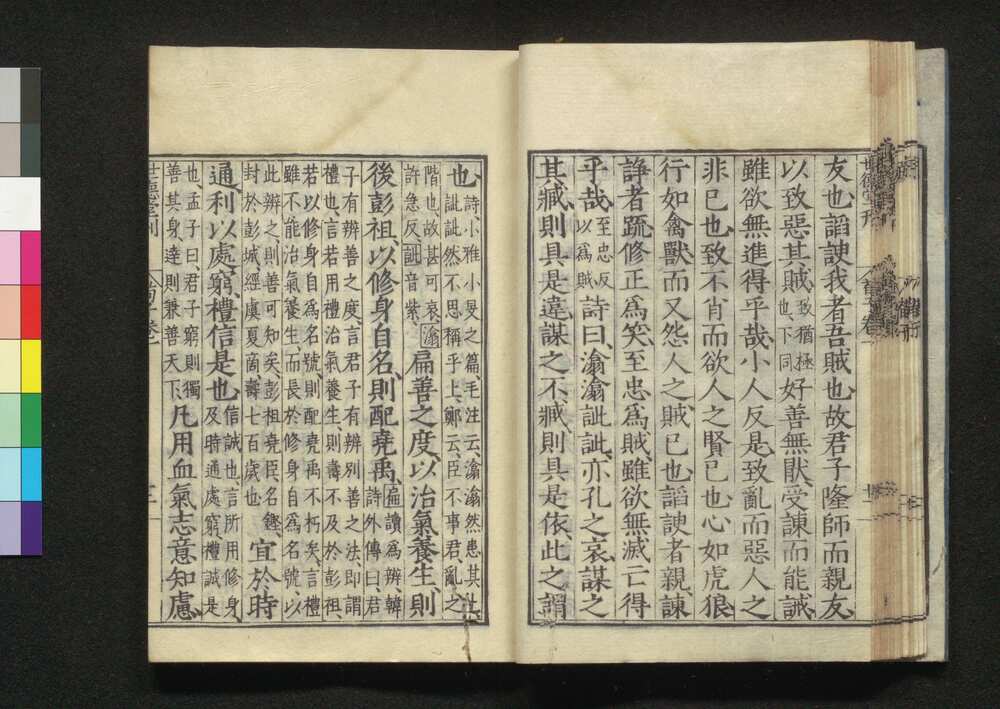 友也、諂諛我者吾賊也、故君子隆師而親友
以致惡其賊、致猶極也、下同好善無猒、受諫而能誡
雖欲無進得乎哉、小人反是致亂而惡人之
非己也、致不肖而欲人之賢己也、心如虎狼
行如禽獸而又怨人之賊己也、諂諛者親、諫
諍者疏、修正爲笑、至忠爲賊、雖欲無滅亡得
乎哉、至忠反以爲賊詩曰、潝潝訿訿、亦孔之哀、謀之
其臧、則具是違、謀之不臧、則具是依、此之謂
也、詩、小雅小旻之篇、毛注云、潝潝然患其上、
訿訿然不思稱乎上、鄭云、臣不事君、亂之
階也、故甚可哀、潝
許急反、訿音紫、扁善之度、以治氣養生、則
後彭祖、以修身自名、則配堯禹、扁讀爲辨、韓詩外傳曰君
子有辨善之度、言君子有辨別善之法、卽謂
禮也、言若用禮治氣養生、則壽不及於彭祖、
若以修身自爲名號、則配堯禹不朽矣、言禮
雖不能治氣養生而長於修身自爲名號、以
此辨之、則善可知矣、彭祖堯臣、名鏗、
封於彭城、經虞夏商、壽七百歲也、宜於時
通、利以處窮、禮信是也、信誠也、言所用修身及時通處窮、禮誠是
也、孟子曰、君子窮則獨
善其身、達則兼善天下、凡用血氣志意知慮
世德堂刊
荀子卷一
世德堂刊
荀子卷一
三